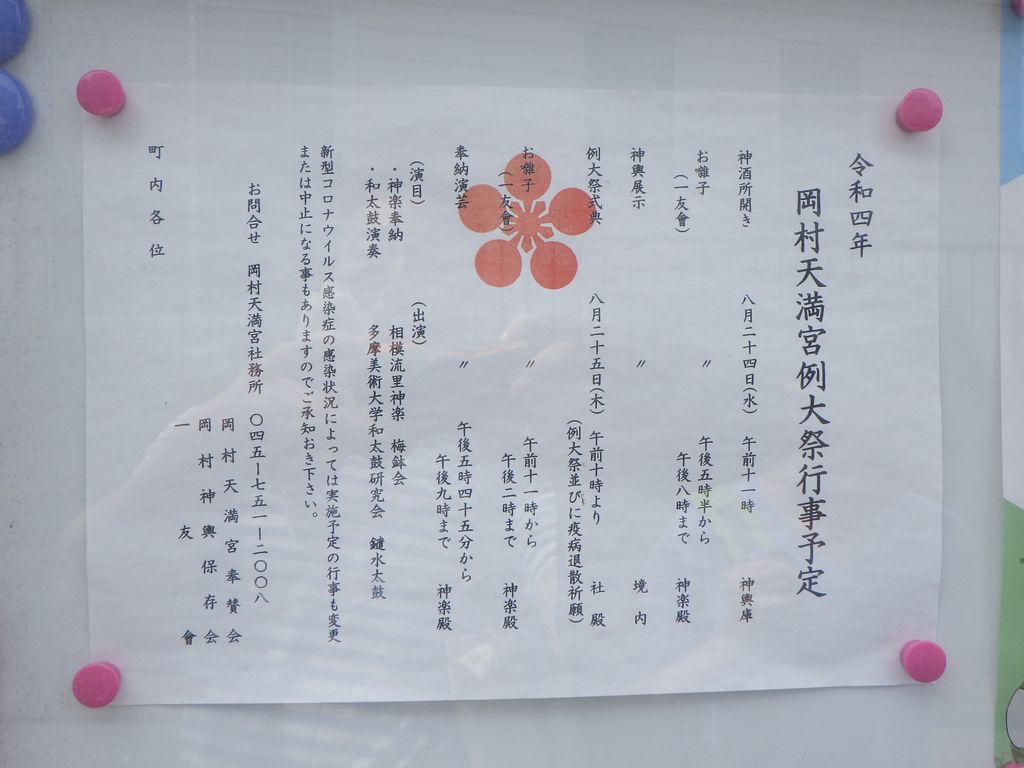 令和四年
岡村天満宮例大祭行事予定
神酒所開き　八月二十四日(水)　午前十一時　神輿庫
お囃子　〃　午後五時半から　神楽殿
(一友會)　午後八時まで
神輿展示　〃　境内
例大祭式典　八月二十五日(木)　午前十時より　社殿
(例大祭並びに疫病退散祈願)
お囃子　〃　午前十一時から　神楽殿
(一友會)　午後二時まで
奉納演芸　〃　午後五時四十五分から　神楽殿
午後九時まで
(演目)　(出演)
・神楽奉納　相模流里神楽　梅鉢会
・和太鼓演奏　多摩美術大学和太鼓研究会　鑓水太鼓
新型コロナウイルス感染症の感染状況によっては実施予定の行事も変更
または中止になる事もありますのでご承知おき下さい。
お問合せ　岡村天満宮社務所　〇四五ー七五一ー二〇〇八
岡村天満宮奉賛会
岡村神輿保存会
一友會
町内各位